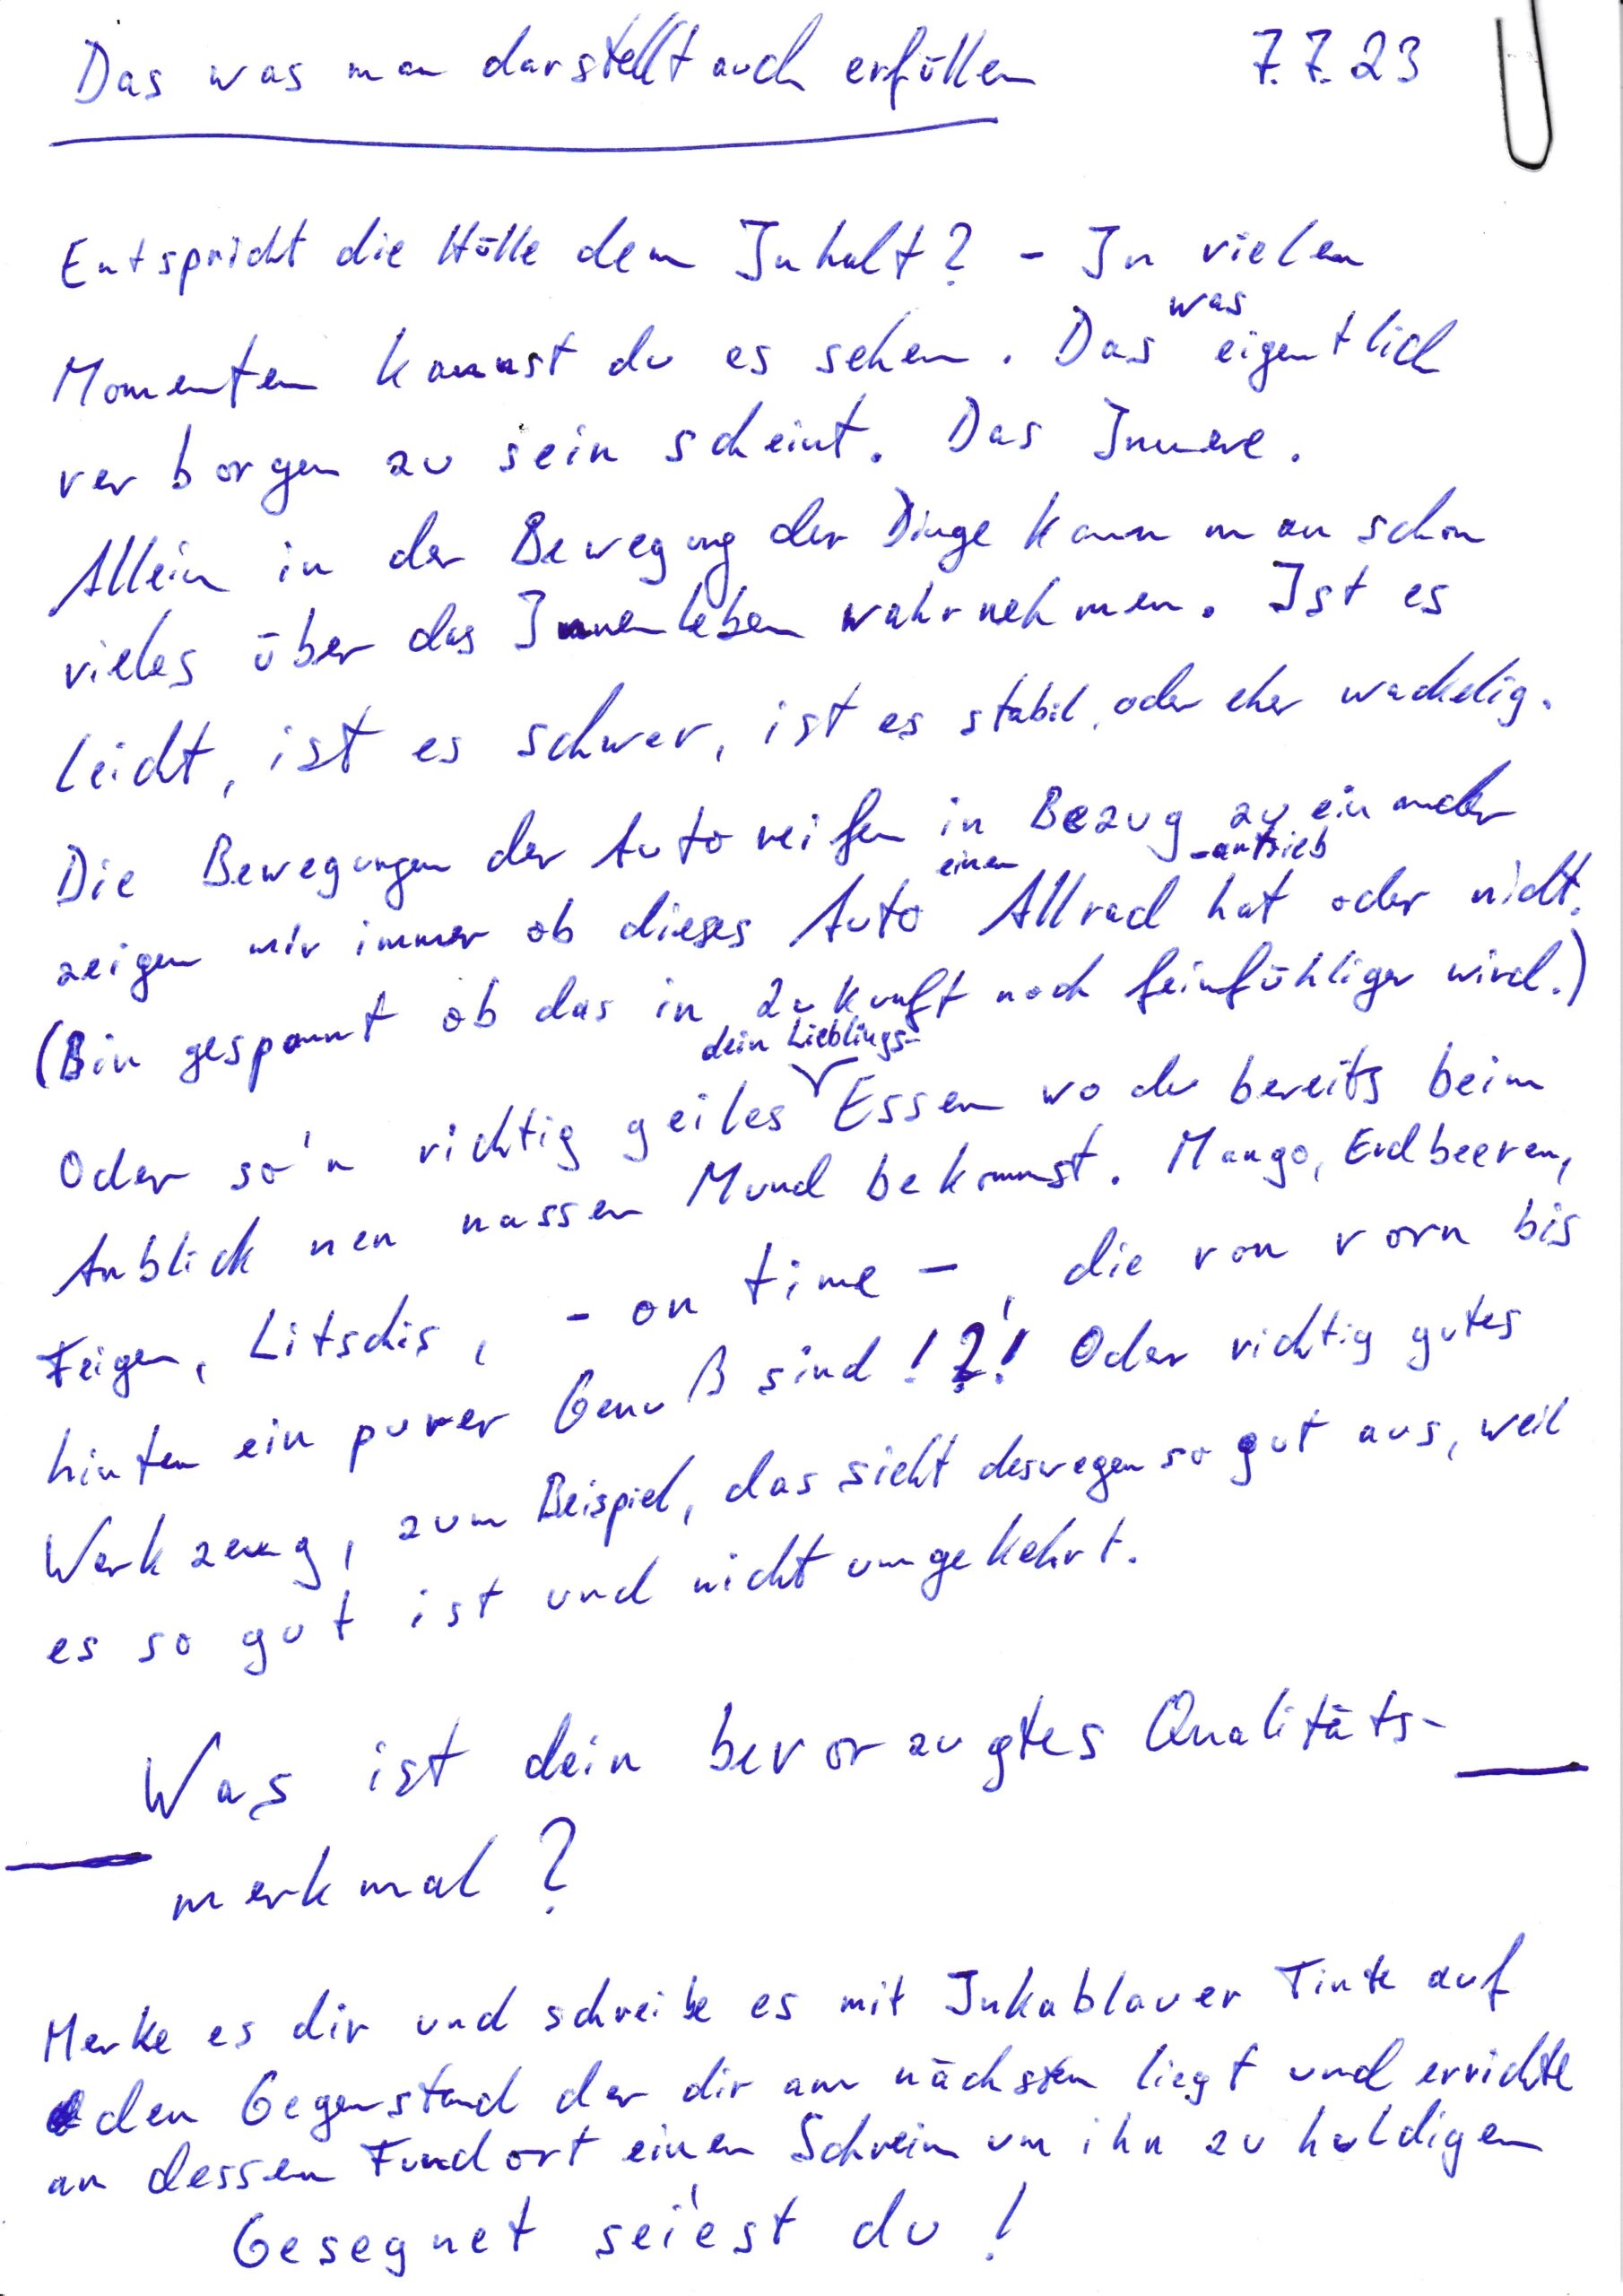 Das was man darstellt auch erfüllen 7.7.23
Entspricht die Hülle dem Inhalt? - In vielen
was
Momenten kannst du es sehen. Das eigentlich
verborgen zu sein scheint. Das Innere.
Allein in der Bewegung der Dinge kann man schon
vieles über das Innenleben wahrnehmen. Ist es
leicht, ist es schwer, ist es stabil, oder eher wackelig.
Die Bewegungen der Autoreifen in Bezug zu einander
einen -antrieb
zeigen mir immer ob dieses Auto Allrad hat oder nicht.
(Bin gespannt ob das in Zukunft noch feinfühliger wird.)
dein Lieblings-
Oder so'n richtig geiles Essen wo du bereits beim
Anblick nen nassen Mund bekommst. Mango, Erdbeeren,
Feigen, Litschis, - on time -, die von vorn bis
hinten ein purer Genuß sind!?! Oder richtig gutes
Werkzeug, zum Beispiel, das sieht deswegen so gut aus, weil
es so gut ist und nicht umgekehrt.
Was ist dein bevorzugtes Qualitäts-
merkmal?
Merke es dir und schreibe es mit Inkablauer Tinte auf
den Gegenstand der dir am nächsten liegt und errichte
an dessen Fundort einen Schrein um ihn zu huldigen
Gesegnet sei'est du!